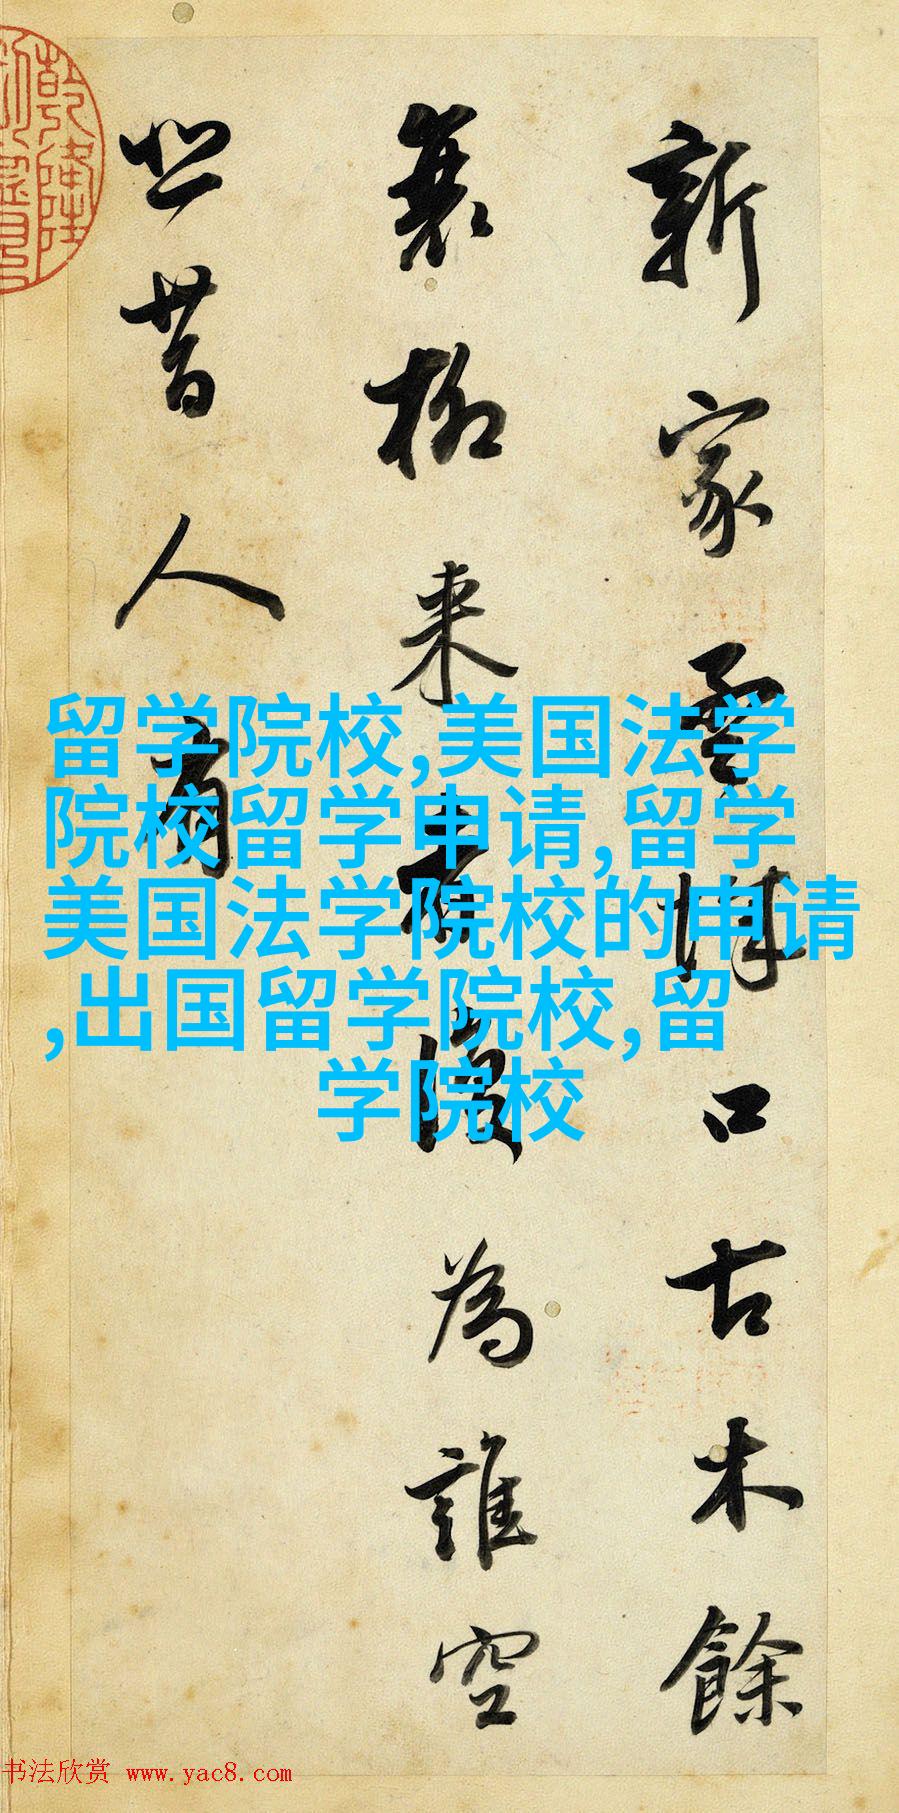 新家孟城口古木餘
衰柳来者復為誰空
悲昔人有
乾隆
留学院校,美国法学
院校留学申请,留学
美国法学院校的申请
,出国留学院校,留
学院校
书法欣赏 www.yac8.com